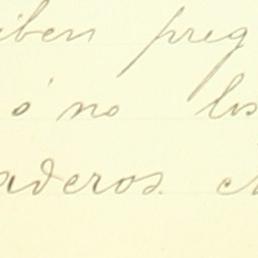 iben preg
ó no los
aderos. en